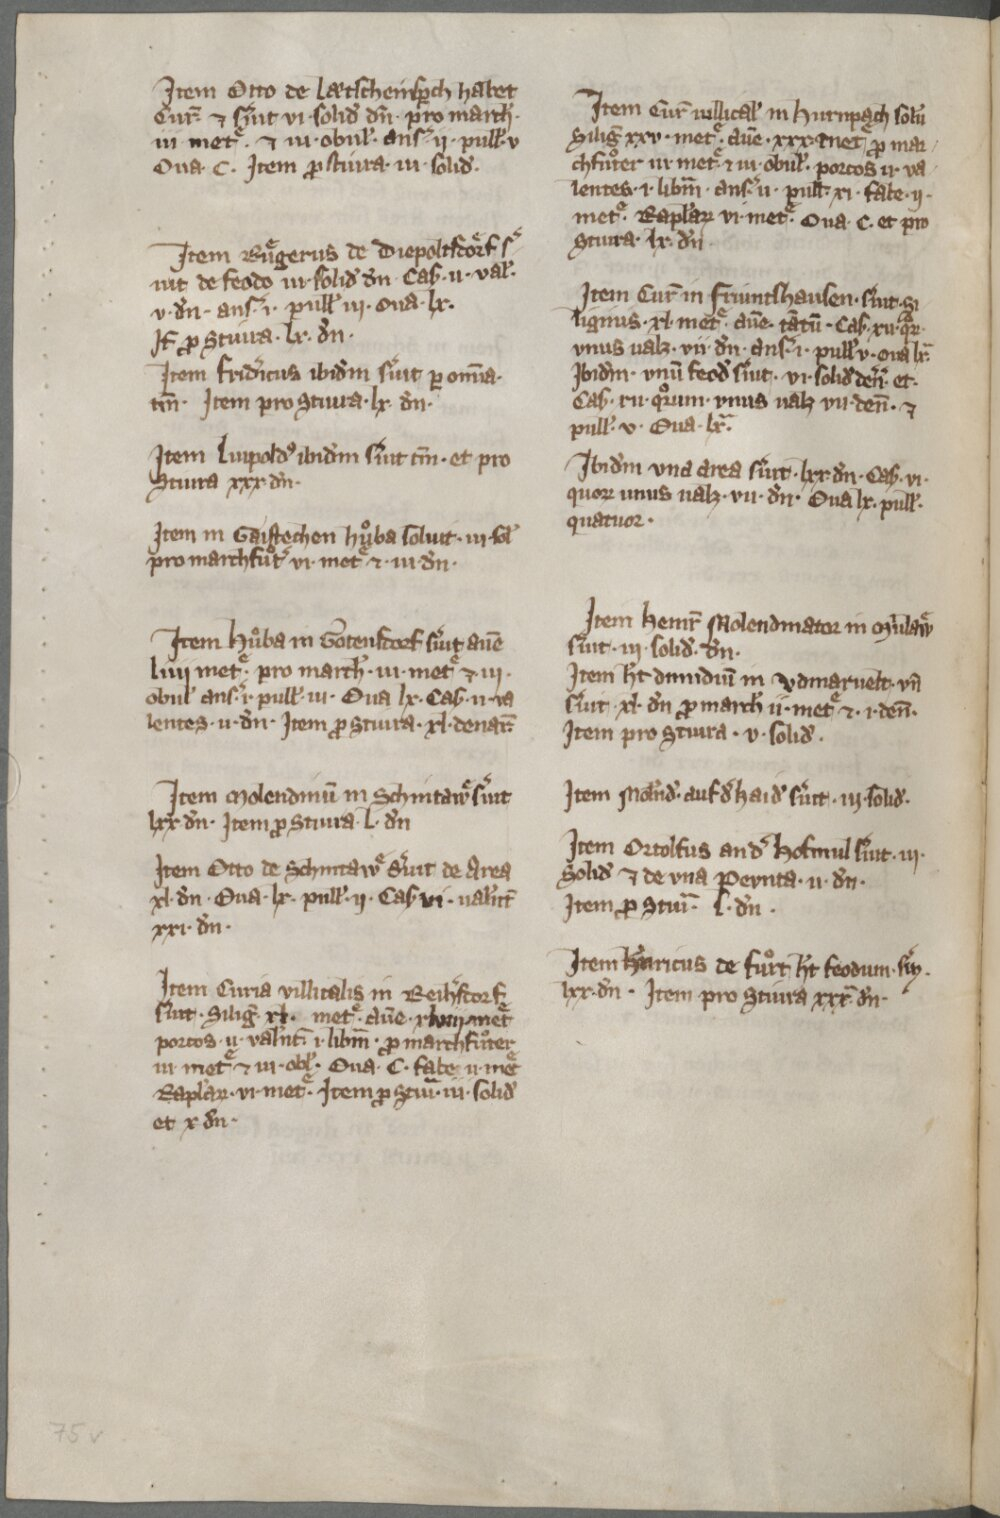 Item Otto de Lætscheinspͤch habet
Cur̄. ⁊ s̾uit vi. solid̾ dn̄. pro march̾.
iii metᷓ. ⁊ iii. obul̾. ans̾. ij. pull̾. v
Oua C. Item ꝓ stiura. iii. solid̾.
Item Růgerus de Diepoltsdorf s̾
uit de feodo iii. solid̾ dn̄. Cas̾. ii. val̾.
v. dn̄. ans̾. i. pull̾. iij. oua. lx.
Jt̄ ꝓ Stiura. lx. dn̄.
Item frid̾icus ibid̾m s̾uit ꝑ om̄ia.
tm̄. Item pro Stiura. lx. dn̄.
Item Luipold᷒ ibid̾m s̾uit tm̄. et pro
Stiura xxx. dn̄.
Item in Gaistechen hůba soluit. iii. sol̾
pro marchfůt̾ vi. metᷓ ⁊. iii. dn̄.
Item Hůba in Gotensdorf s̾uit aue̅
liiij metᷓ. pro march̾. iii. metᷓ ⁊ iij.
obul̾ ans̾. i. pull̾. iii. Oua lx. Cas̾. ii. va
lentes. ii. dn̄. Item ꝓ stiura. xl. denar̄.
Item Molendinū in Schintaw̾ s̾uit
lxx. dn̄. Item ꝓ Stiura. L. dn̄
Item Otto de Schintaw̾ s̾uit de Area
xl. dn̄. Oua. lx. pull̾. ij. Cas̾. vi. ualēt
xxi. dn̄.
Item Curia villicalis in Reih̾storf
s̾uit. Silig̾. xl. metᷓ. aue̅. metᷓ
porcos. ii. valēt. i. libm̄. ꝓ marchfůter
iii metᷓ ⁊ iii. obl̾. Oua. C. fabe. ii. metᷓ
Raplar̄. vi. metᷓ. Item ꝓ Stiūr. iii. solid̾
et x dn̄.
Item Cur̄ uillical̾ in Hurnpach solu̅
Silig̾ xxv. metᷓ. aue̅. xxx. metᷓ. ꝓ mar
chfůter iii metᷓ. ⁊ iii. obul̾. porcos ii. va
lentes. i. libm̄. ans̾. ii. pull̾. xi. fabe. ij.
metᷓ. Raplar̄ vi. metᷓ. Oua. C. et pro
Stiura. lx. dn̄.
Item Cur̄ in Friuntshausen. s̾uit. Si
liginis. xl. metᷓ. aue̅. tātū. Cas̾. xii. qͦr̄.
vnus ualz. vii. dn̄. ans̾. i. pull̾. v. oua lx.
Ibid̾m. vnū feod̾ s̾uit. vi. solid̾ den̄. et.
Cas̾. xii. qͦrum. vnus ualz vii. den̄. ⁊
pull̾. v. Oua. lx.
Ibid̾m vna area s̾uit. lxx. dn̄. Cas̾. vi.
quor̄ unus ualz. vii. dn̄. Oua lx. pull̾.
quatuor.
Item Heinr̄ Molendinator in Mūlaw̾
s̾uit. iij. solid̾. dn̄.
Item h̾t dimidiū in Vdmaruelt. vn̄
s̾uit xl. dn̄ ꝓ march̾ ii. metᷓ ⁊. i. den̄.
Item pro Stiura. v. solid̾.
Item Molnd̾. auf d̾ haid̾ s̾uit. iij. solid̾.
Item Ortolfus an d̾ Hofmul s̾uit. iii.
Solid̾ ⁊ de vna Peunta. ii. dn̄.
Item ꝓ Stiūr. L. dn̄.
Item Hainricus de fůrt h̾t feodum. s̾uit.
lxx. dn̄. Item pro Stiura xxx. dn̄.
75v